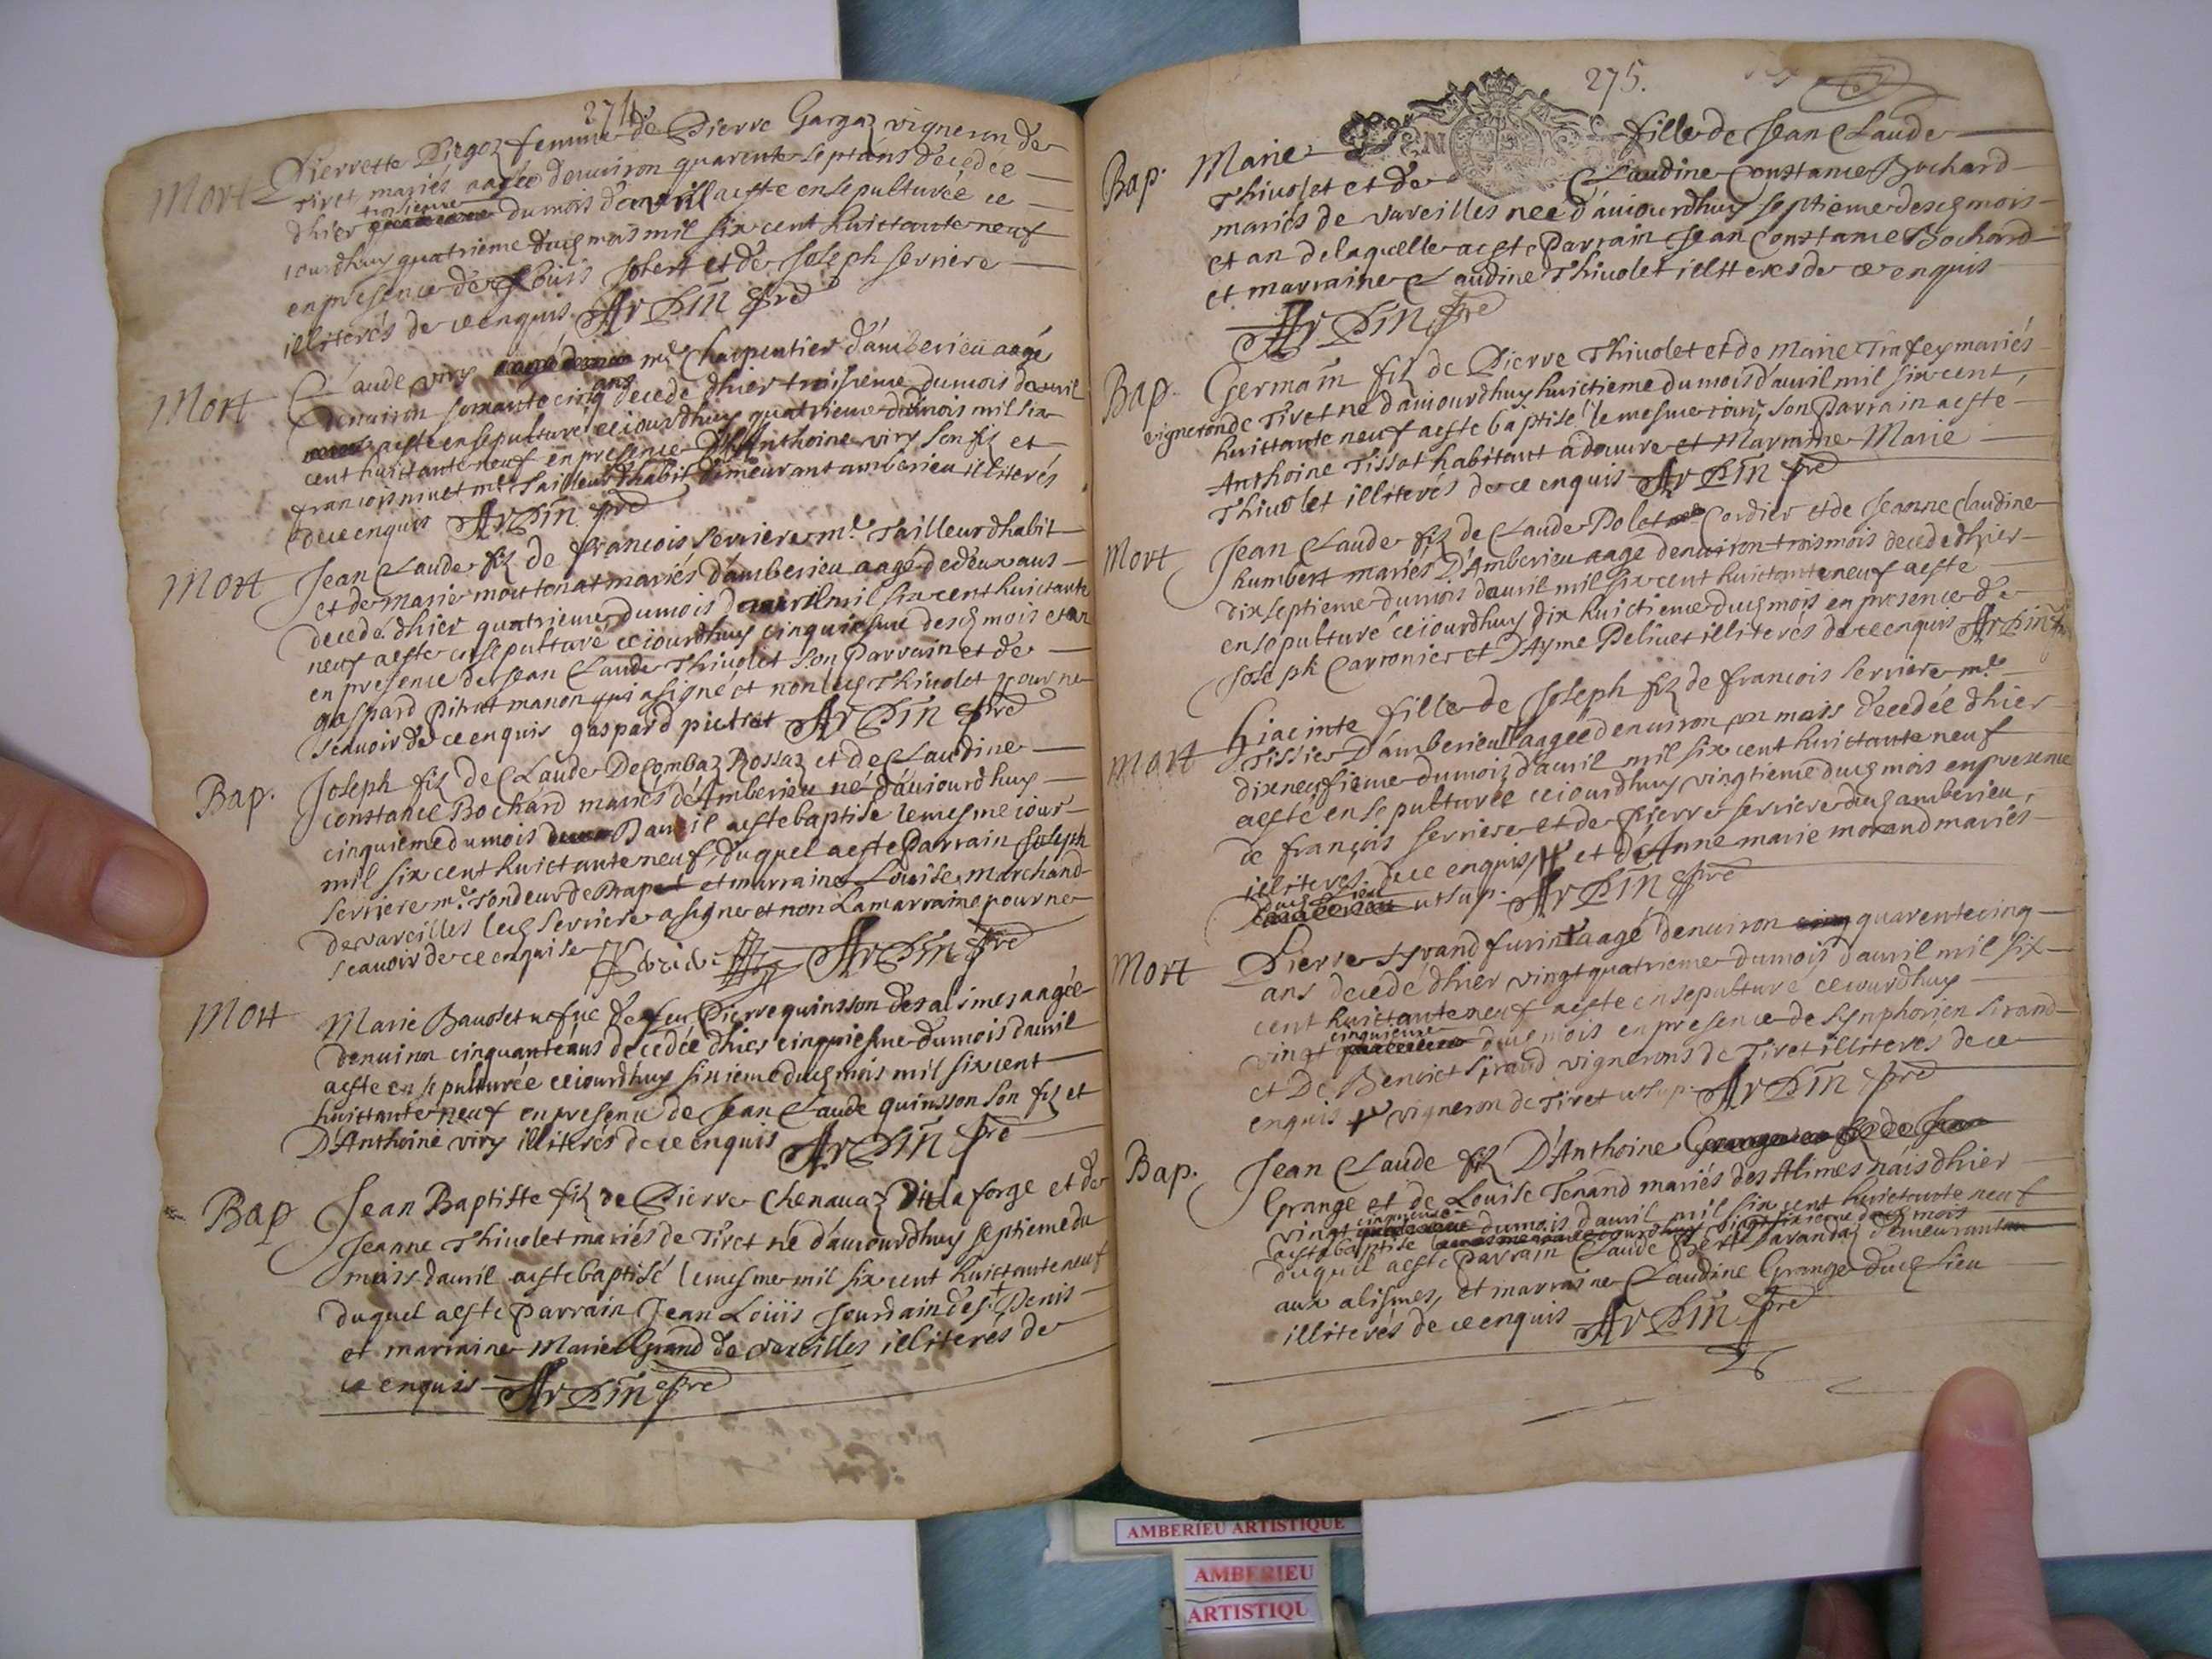 274.
Mort Pierrette Piegoz femme de Pierre Gargaz vigneron de
Tiret mariés aagée denuiron quarente sept ans decedée
dhier troisieme du mois davvril aeste ensepulturée ce
iourdhuy quatrieme ducg mois mil six cent huictante neuf
en presence de Louis Jobert et de Joseph serriere
illiterés de ce enquis. Arpin pre
Mort Claude viry me Charpentier d'amberieu aagé
denuiron soixante cinq ans decedé dhier troisieme du mois davril
aeste ensepulturé ceiourdhuy quatrieme dumois mil six
cent huictante neuf en presence D'Anthoine viry son fiz et
francois niuet me Tailleur dhabit demeurant amberieu illiterés
de ce enquis Arpin pre
Mort Jean Claude fiz de francois serriere me Tailleur dhabit
et de Marie moutonat mariés d'amberieu aagé de deux ans
decedé dhier quatrieme dumois davvril mil six cent huictante
neuf aeste ensepulturé ceiourdhuy cinquiesme desg mois et an
en presence de Jean Claude Thiuolet son Parrain et de
gaspard pitrat manon qui a signé et non lecg Thiuolet pour ne
scauoir de ce enquis gaspard pietrat Arpin pre
Bap. Joseph fiz de Claude Decombaz Rossaz et de Claudine
constance Bochard mariés d'Amberieu né d'auiourdhuy
cinquieme dumois Davril aeste baptisé le mesme iour
mil six cent huictante neuf, duquel aeste Parrain Joseph
serriere me Tondeur de Drapet et marraine Louise marchand
de vareilles lecg serriere a signe et non La marraine pour ne
scauoir de ce enquise Arpin pre
Mort Marie Bauolet uefue de feu Pierre quinsson des alimes aagée
denuiron cinquante ans decedée dhier cinquiesme dumois d'auril
aeste ensepulturée ceiourdhuy sixieme ducg mois mil six cent
huictante neuf en presence de Jean Claude quinsson son fiz et
D'Anthoine viry illiterés de ce enquis Arpin pre
Bap Jean Baptiste fiz de Pierre Chenauaz Dit la forge et de
Jeanne Thiuolet mariés de Tiret né d'auiourdhuy septieme du
mois dauril aeste baptisé le mesme mil six cent huictante neuf
duquel aeste parrain Jean Loüis Jourdain de st Denis
et marraine Marie Grand de vareilles illiterés de
ce enquis Arpin pre
275.
Bap. Marie fille de Jean Claude
Thiuolet et de Claudine Constance Bochard
mariés de vareilles née d'auiourdhuy septieme descg mois
et an de laquelle aeste Parrain Jean Constance Bochard
et marraine Claudine Thiuolet illiteres de ce enquis
Arpin pre
Bap. Germain fiz de Pierre Thiuolet et de Marie Trafey mariés
vigneron de Tiret né d'auiourdhuy huictieme dumois d'auril mil six cent
huictante neuf aeste baptisé le mesme iour, son Parrain aeste
Anthoine Tissot habitant a douure et Marraine Marie
Thiuolet illiterés de ce enquis Arpin pre
Mort Jean Claude fiz de Claude Polet Cordier et de Jeanne Claudine
humbert mariés D'Amberieu aagé denuiron trois mois decedé dhier
dixseptieme dumois dauril mil six cent huictante neuf aeste
ensepulturé ceiourdhuy dix huictieme ducg mois en presence de
Joseph Carronier et D'Ayme Peliuet illiterés de ce enquis Arpin pre
Mort Hiacinte fille de Joseph fiz de francois serriere me
Tissier D'amberieu aagée denuiron un mois decedée dhier
dixneufieme dumois d'auril mil six cent huictante neuf
aeste ensepulturée ceiourdhuy vingtieme ducg mois en presence
de françois serriere et de Pierre serriere ducg amberieu,
illiteres de ce enquis et d'Anne marie morand mariés
ducg lieu ut sup. Arpin pre
Mort Pierre syrand furint aagé denuiron quarente cinq
ans decedé dhier vingt quatrieme dumois d'auril mil six
cent huictante neuf aeste ensepulturé ceiourdhuy
vingt cinquieme ducg mois en presence de Synphorien sirand
et De Benoict sirand vignerons de Tiret illiterés de ce
enquis vigneron de Tiret ut sup. Arpin pre
Bap. Jean Claude fiz D'Anthoine
Grange et de Louise Tenand mariés des Alimes nais dhier
vingt cinquieme dumois d'auril mil six cent huictante neuf
aeste baptisé ceiourdhuy vingt sixieme ducg mois
duquel aeste Parrain Claude Bert Barandaz demeurant
aux alismes, et marraine Claudine Grange ducg lieu
illiterés de ce enquis Arpin pre
AMBERIEU ARTISTIQUE
AMBERIEU
ARTISTIQU